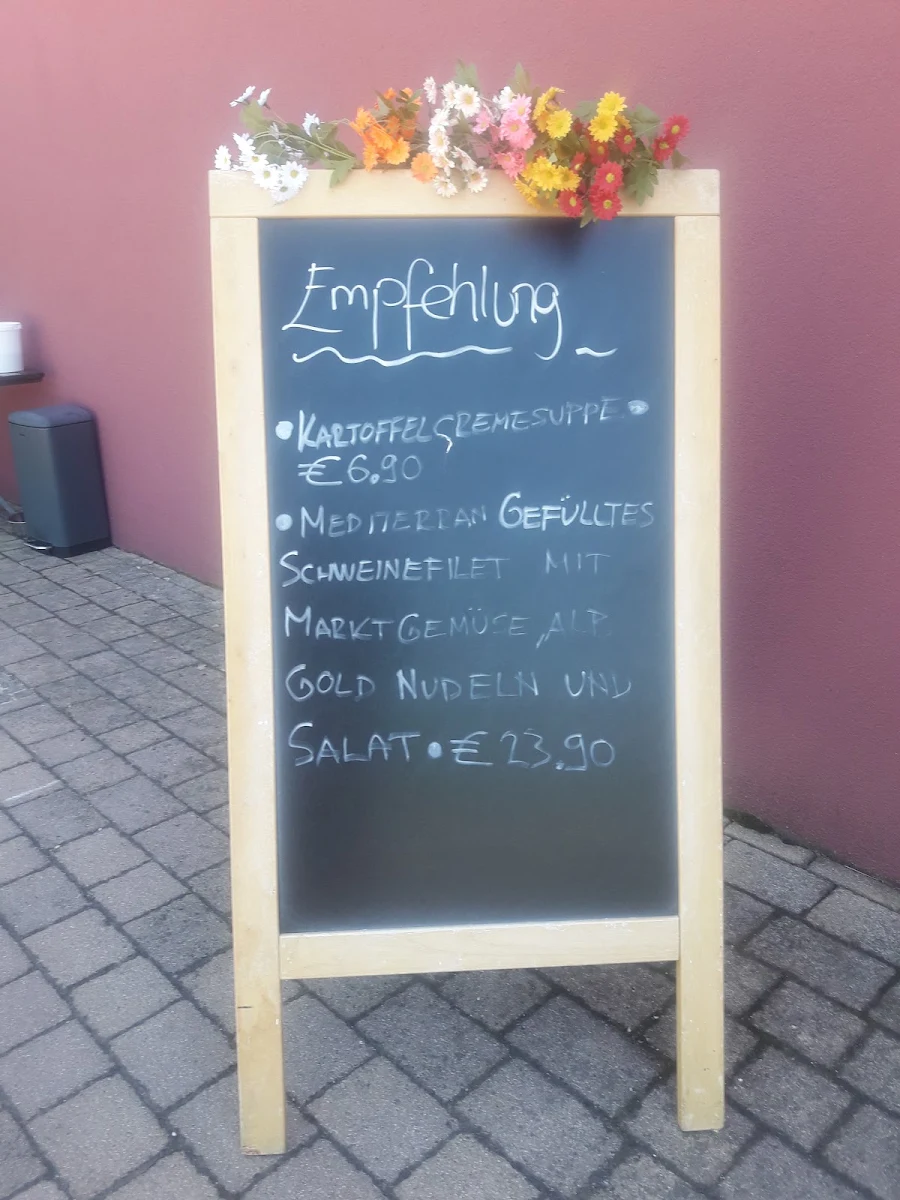 Empfehlung
• KARTOFFELCREMESUPPE •
€ 6.90
• MEDITERRAN GEFÜLLTES
SCHWEINEFILET MIT
MARKTGEMÜSE, ALP
GOLD NUDELN UND
SALAT • € 23.90